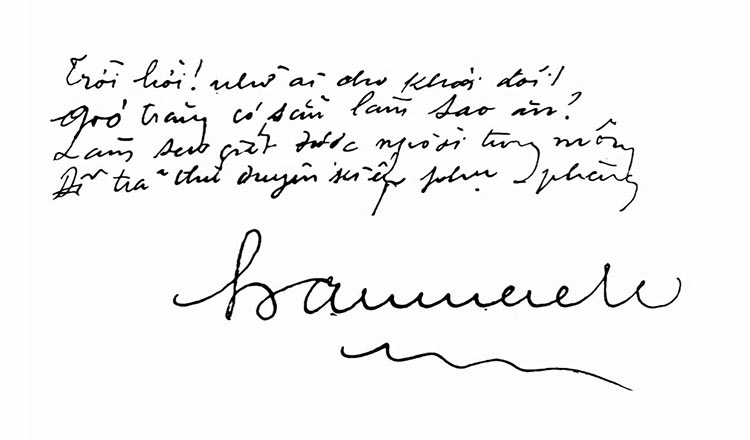 Trời hỡi! nhờ ai cho khỏi đói!
Gió trăng có sẵn làm sao ăn?
Làm sao giết được người trong mộng
Để trả thù duyên kiếp phụ phàng